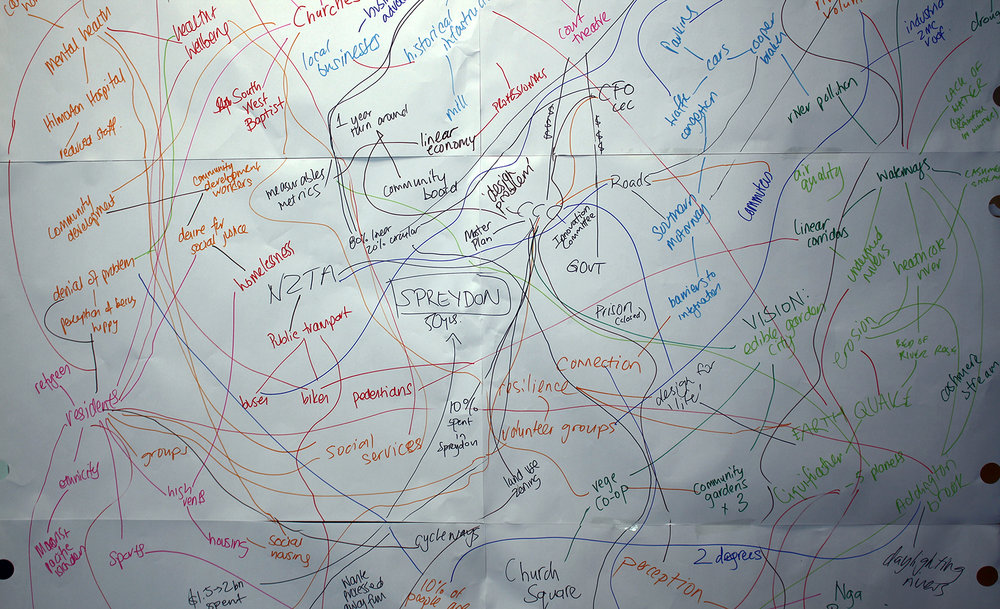 Mental health
healthy
wellbeing
Churches
local
businesses
historical
court
theatre
Parking
cars
river pollution
industrial
zinc
roof
LACK OF
WATER
Hillmorton Hospital
reduced staff
South
West
Baptist
1 year
turn around
linear
economy
mill
PROFESSIONAL
CEO
traffic
congestion
community
development
workers
measurables
metrics
community board
design
problem!
Roads
Commuters
air
quality
waterways
Community
development
desire for
social justice
80% linear
20% circular
Master
Plan
CCC
Innovation
Committee
Southern
motorway
linear
corridors
underground
rivers
heathcote
river
denial of problem
perception of being
happy
homelesness
NZTA
GOVT
SPREYDON
50 yrs.
Prison
(closed)
barriers to
integration
VISION:
edible garden
city
erosion
BED OF
RIVER ROSE
cashmere
stream
Public transport
refugees
residents
buses
bikes
pedestrians
connection
resilience
design for
life!
EARTHQUAKE
10%
spent
in
Spreydon
volunteer groups
groups
social
services
ethnicity
high
rents
land use
zoning
vege
co-op
community
gardens
x 3
- 5 planets
Addington
brook
sports
housing
social
housing
cycleways
2 degrees
perception
daylighting
rivers
$1.5->2bn
spent
10% of
people are
Church
Square
Nga